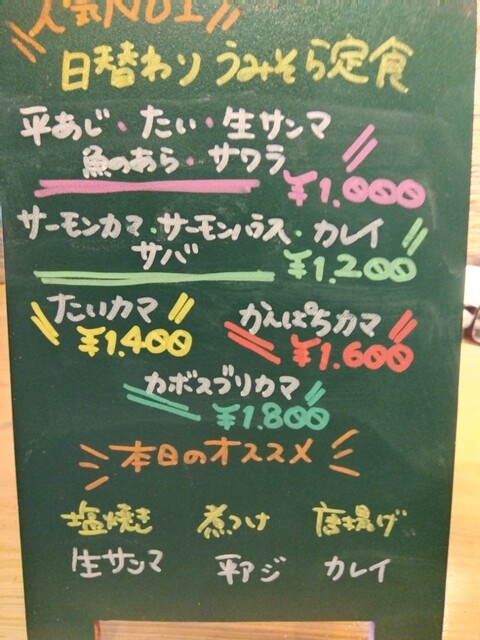 人気NO1
日替わり うみそら定食
平あじ・たい・生サンマ
魚のあら・サワラ
¥1.000
サーモンカマ・サーモンハラス・カレイ
サバ
¥1.200
たいカマ
¥1.400
かんぱちカマ
¥1.600
カボスブリカマ
¥1.800
本日のオススメ
塩焼き 煮つけ 唐揚げ
生サンマ 平アジ カレイ